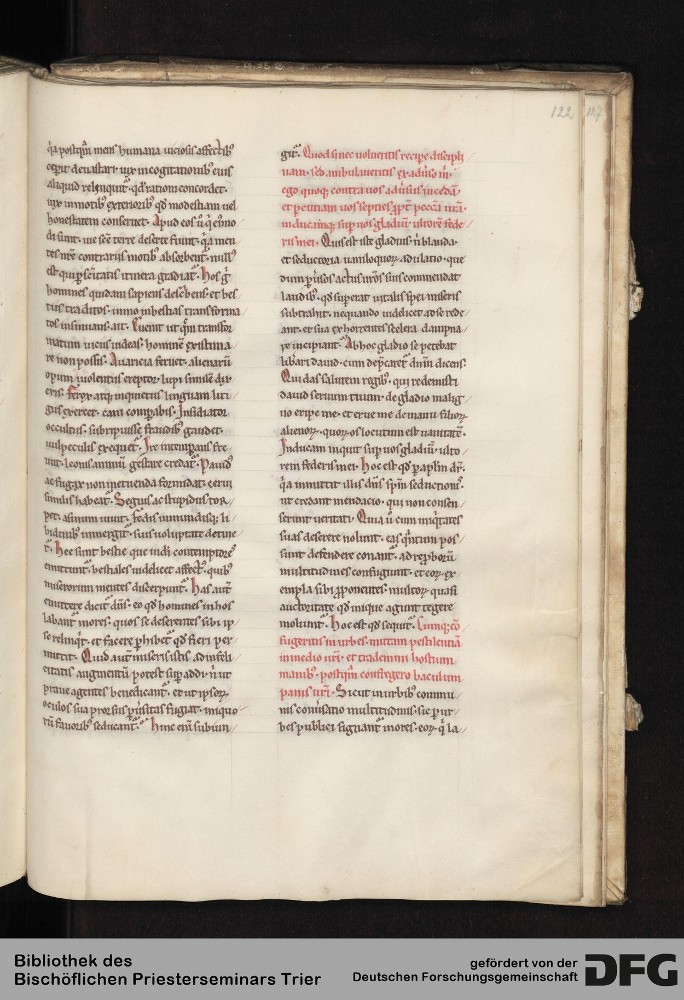 122
q̃a postq̃m mens humana uiciosis affectibꝰ
ceperit deuastari. uix in cogitationibꝰ eius
aliquid relinquit᷑. qd̓ rationi concordet.
uix in motibꝰ exterioribꝰ qd̓ modestiam uel
honestatem conseruet. Apud eos
di sunt. uie
est qui ꝑ semitas itinera gradiat᷑. Hos g̓
homines quidam sapiens describens. et bes
tiis traditos. immo in bestias transforma
tos insinuans ait. Euenit ut q̃m transfor
matum uiciis uideas. hominē existima
re non possis. Auaricia feruet. alienarū
opum uiolentus ereptor. lupi similē dix
eris. Ferox atq; inquietus linguam liti
giis exercet. cani comparabis. Insidiator
occultus. subripuisse fraudibꝰ gaudet.
uulpeculis exequet᷑. Ire intemꝑans fre
mit. leonis animū gestare credat᷑. Pauidꝰ
ac fugax non metuenda formidat. ceruis
similis habeat᷑. Segnis ac stupidus tor
pet. asinum uiuit. Fedis inmundisq; li
bidinibꝰ inmergit᷑. suis uoluptate detine
t᷑. Hee sunt bestie que
emittunt᷑. bestiales uidelicet affectꝰ. quibꝰ
miserorum mentes discerpunt᷑. Has aut̄
emittere dicit᷑ dn̄s. eo qd̓ homines in hos
labant᷑ mores. quos se deserentes sibi ip
se relinqt᷑. et facere ꝑhibet᷑ qd̓ fieri per
mittit. Quid aut̄ miseris istis ad infeli
citatis augmentū potest suꝑaddi. n̄ ut
praue agentes benedicant᷑. et ut ipsoꝝ
oculos sua prorsus ꝑuersitas fugiat. iniquo
rū fauoribꝰ seducant᷑. Hinc enim subiun
git᷑. Quod si nec uolueritis recipe discipli
nam. sed ambulaueritis ex aduso m̓.
ego quoq; contra uos adusus incedā.
et percutiam uos septies ꝓpt̄ peccā ur̄a.
inducamq; suꝑ uos gladiū ultorē fede
ris mei. Quis est iste gladius. n̄ blanda.
et seductoria uaniloquoꝝ adulatio. que
dum ꝑuersos actus mr̄os suis commendat
laudibꝰ. qd̓ superat uitalis spei miseris
subtrahit. ne quando uidelicet ad se rede
ant. et sua exhorrentes scelera dampna
re incipiant. Ab hoc gladio se petebat
libari dauid. cum dep̃caret᷑ dn̄m dicens.
Qui das salutem regibꝰ. qui redemisti
dauid seruum tuum. de gladio malig
no eripe me. et erue me de manu filioꝝ
alienoꝝ. quoꝝ os locutum est uanitatē.
Inducam inquit suꝑ uos gladiū. ulto
rem federis mei. Hoc est qd̓ ꝑ aplm̄ dr̄.
q̃a inmittit illis dn̄s spm̄ seductionꝭ.
ut credant mendacio. qui non consen
serunt ueritati. Quia ū cum iniq̃tates
suas deserere nolunt. eas q̃ntum pos
sunt defendere conant᷑. ad reꝓborū
multitudines confugiunt. et eoꝝ ex
empla sibi ꝓponentes. multoꝝ quasi
auctoritate qd̓ inique agunt tegere
moliunt᷑. Hoc est qd̓ sequit᷑. Cumq; cō
fugeritis in urbes. mittam pestilentiā
in medio ur̄i. et trademini hostium
manibꝰ. postq̃m confregero baculum
panis ur̄i. Sicut in urbibꝰ commu
nis conuersatio multitudinis. sic ꝑ ur
bes publici signant᷑ mores. eoꝝ q̓ la
Bibliothek des
Bischöflichen Priesterseminars Trier
gefördert von der
Deutschen Forschungsgemeinschaft
DFG